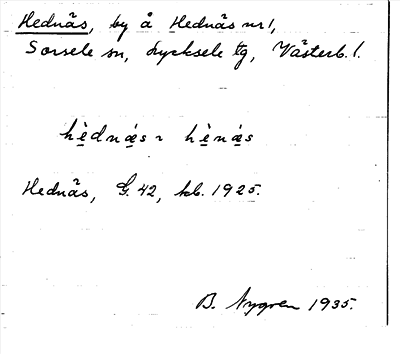 Hednäs, by å Hednäs nr 1,
Sorsele sn, Lycksele tg, Västerb. l.
hèdnäs ~ hènäs
Hednäs, G. 42, kb. 1925.
B. Nygren 1935.